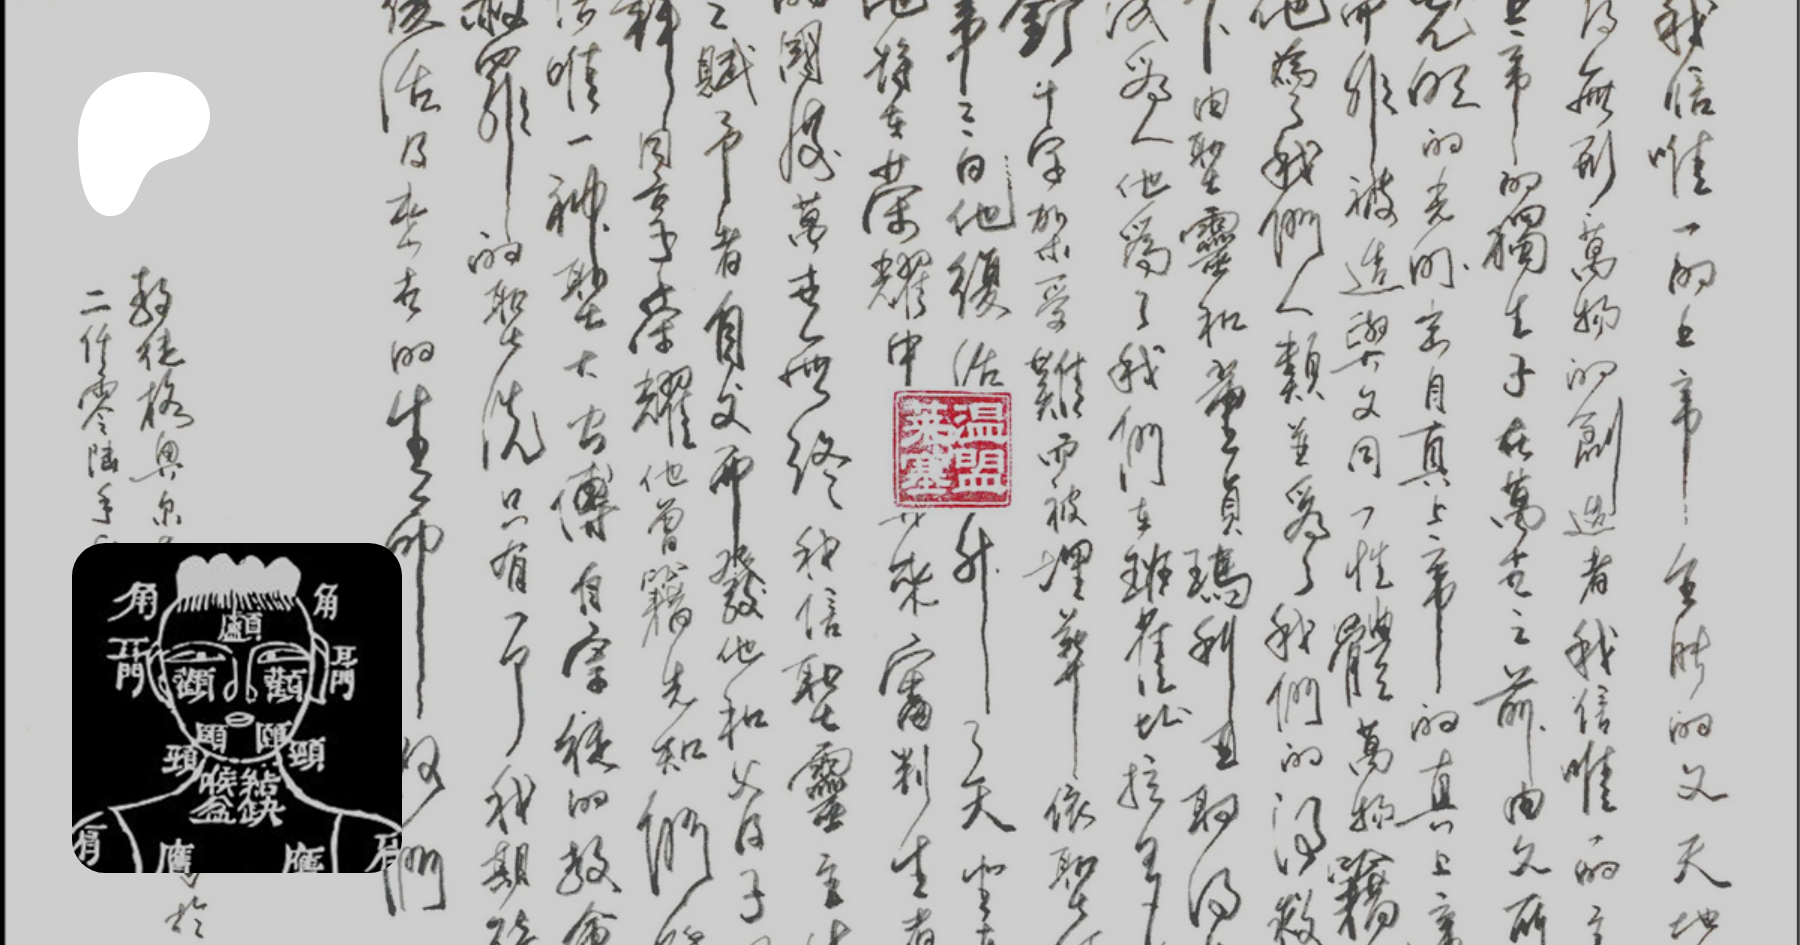 我信唯一的上帝全能的父天地
及無形萬物的創造者我信唯一的主
上帝的獨生子在萬世之前由父所
的光明出自真上帝的真上帝
而非被造與父同一性體萬物籍
他為了我們人類並為了我們的得救
下由聖靈和童貞瑪利亞取得
成為人他為了我們在
釘十字架受難而被埋葬依聖
第三日他復活升了天坐在
他將在榮耀中來審判生者
的國度萬世無終我信聖靈主
之賦予者自父而發他和父及子
拜同享榮耀他曾籍先知們
信唯一神聖大公傳自宗徒的教會
赦罪的聖洗只有一我期
復活及來世的生命阿們
教徒格奧爾
二仟零陸年
於
温盟
葉塞
角 角
顱
耳門 耳門
顴 顴
頤 頤
頸 頸
喉結
盆缺
肩 膺 膺 肩